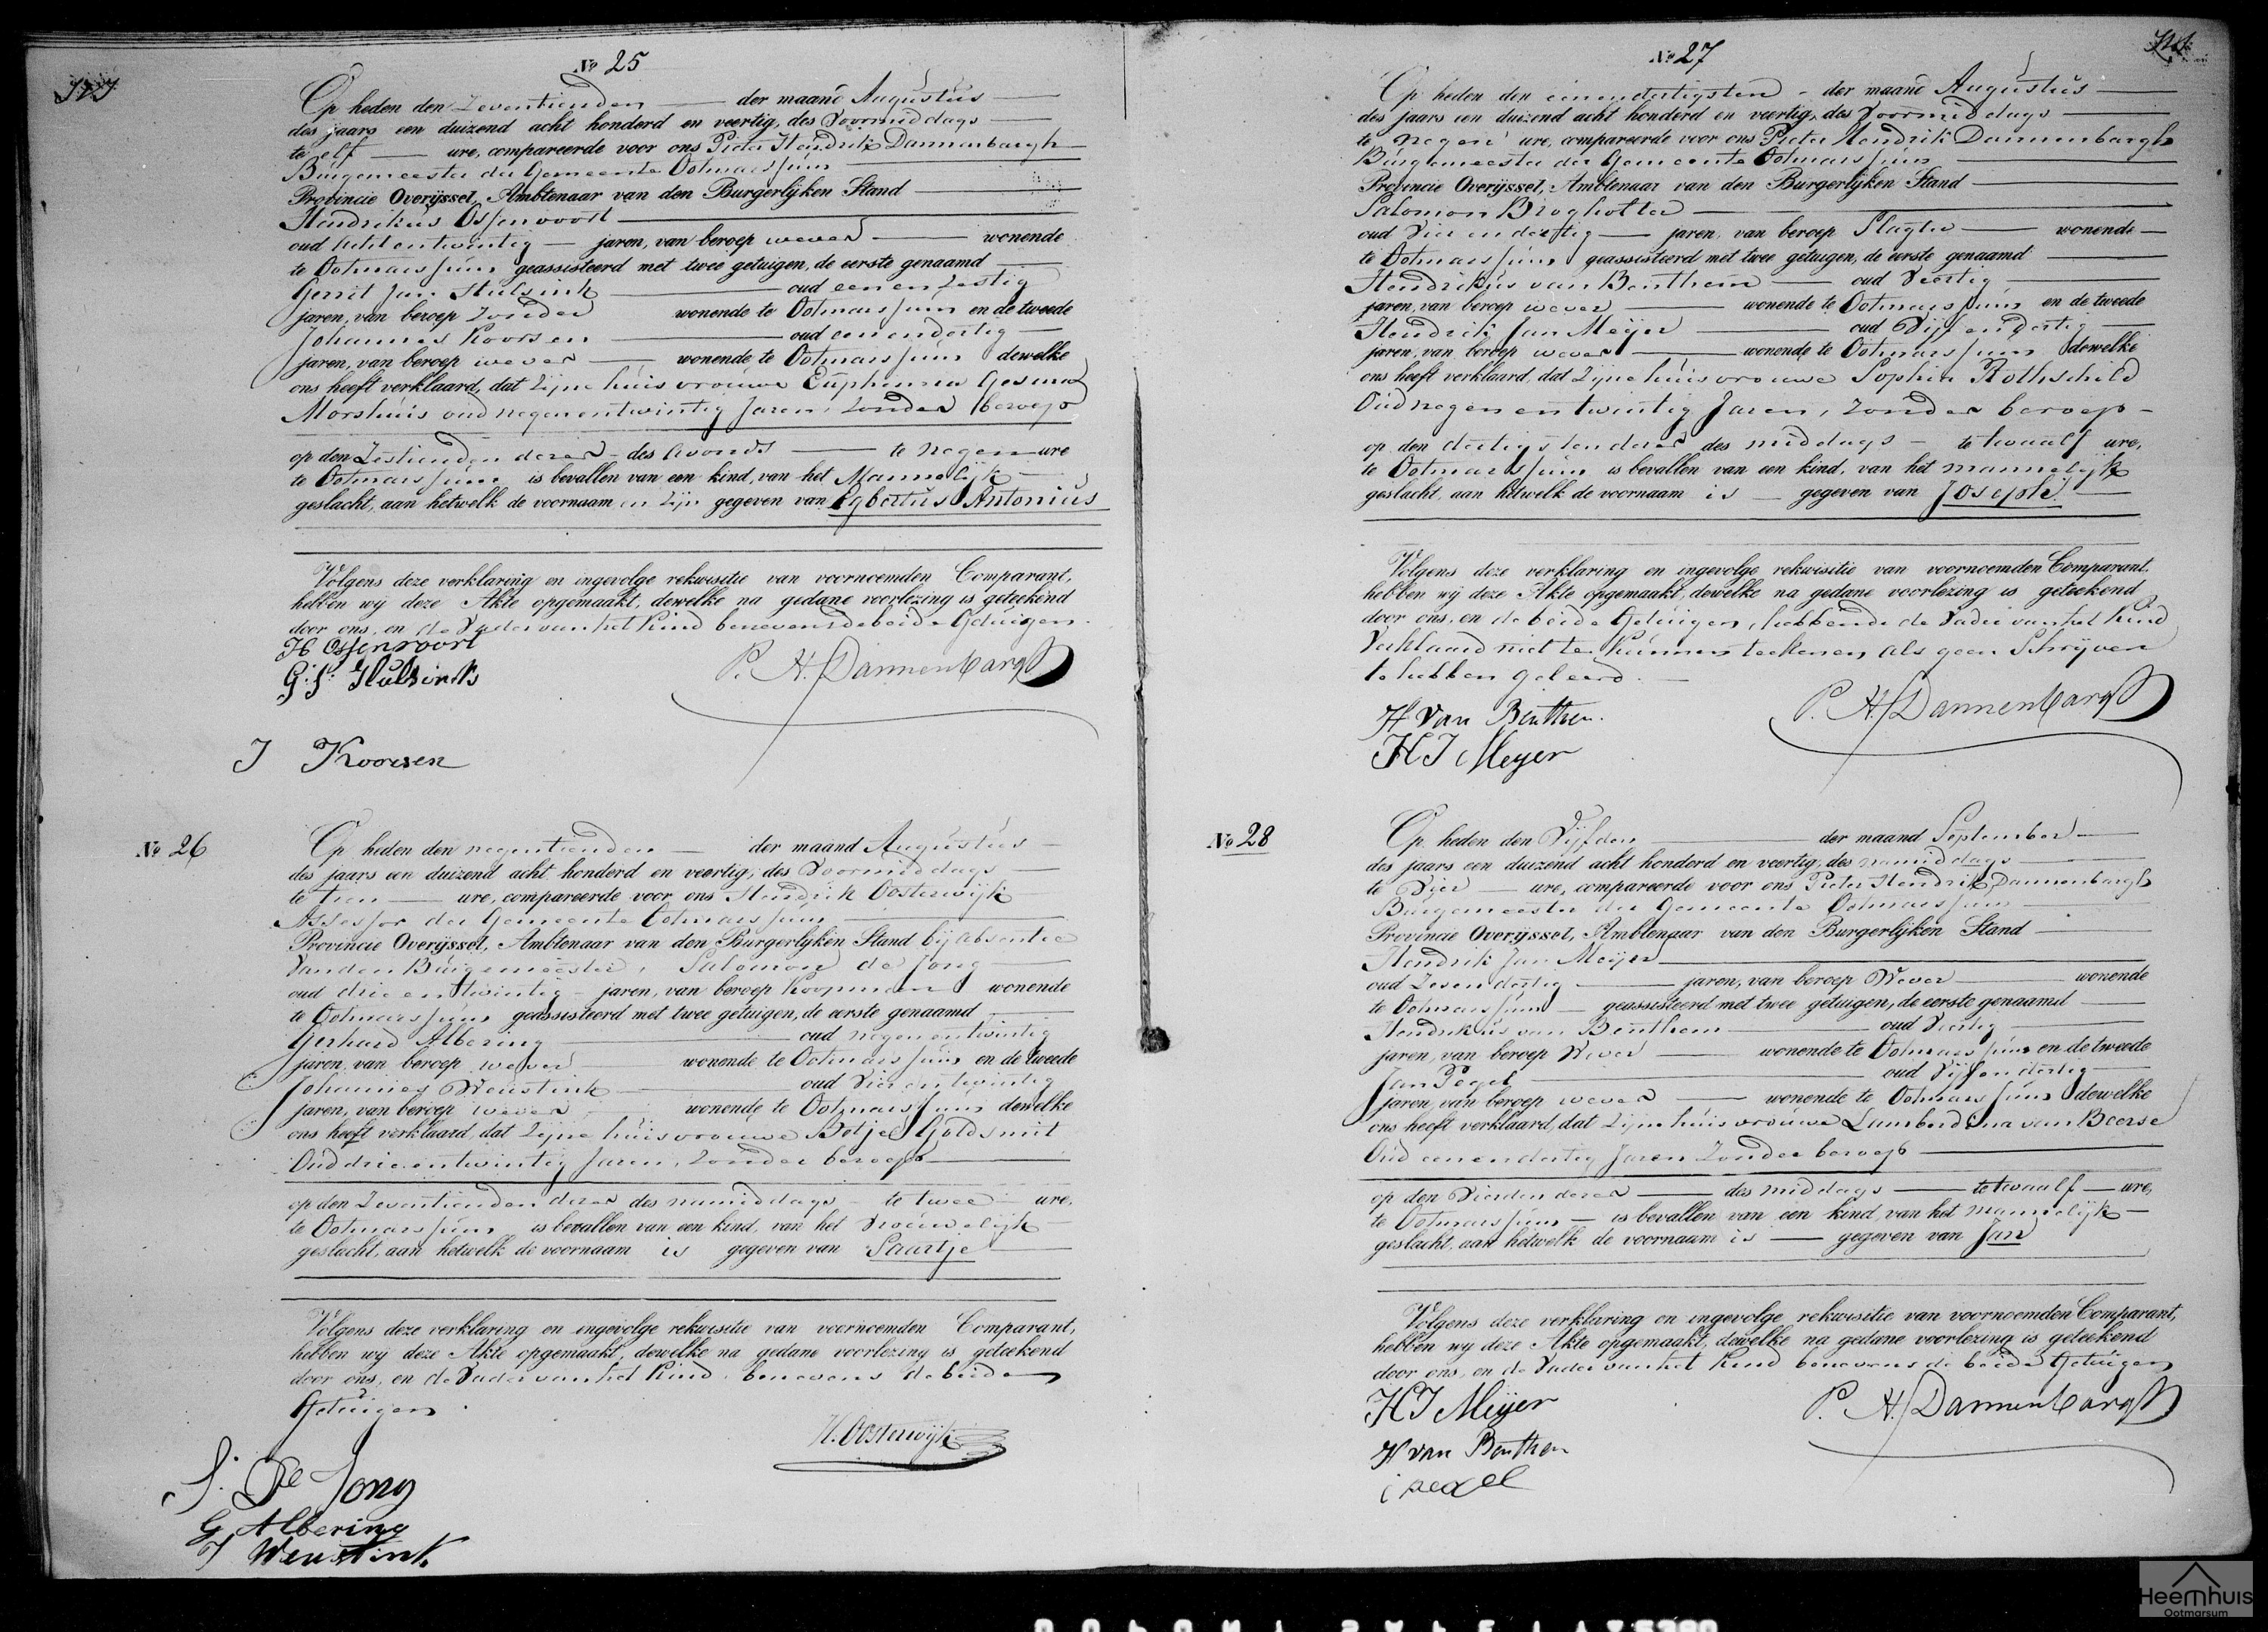 № 25
Op heden den Zeventienden der maand Augustus
des jaars een duizend acht honderd en veertig, des Voormiddags
te elf ure, compareerde voor ons Pieter Hendrik Dannenbargh
Burgemeester der Gemeente Ootmarssum
Provincie Overijssel, Ambtenaar van den Burgerlijken Stand
Hendrikus Ossenvoort
oud acht en twintig jaren, van beroep wever wonende
te Ootmarssum geassisteerd met twee getuigen, de eerste genaamd
Gerrit Jan Hulsink oud een en Zestig
jaren, van beroep Zonder wonende te Ootmarssum en de tweede
Johannes Koorsen oud een en dertig
jaren, van beroep wever wonende te Ootmarssum dewelke
ons heeft verklaard, dat Zijne huisvrouwe Euphemia Gesina
Morshuis oud negen en twintig Jaren, Zonder beroep
op den Zestienden dezer des Avonds te negen ure
te Ootmarssum is bevallen van een kind, van het Mannelijk
geslacht, aan hetwelk de voornaam en Zijn gegeven van Egbertus Antonius
Volgens deze verklaring en ingevolge rekwisitie van voornoemden Comparant,
hebben wij deze Akte opgemaakt, dewelke na gedane voorlezing is geteekend
door ons, en de Vader van het Kind benevens de beide Getuigen.
H Ossenvoort
G. J. Hulsink
P. H. Dannenbargh
J Koorsen
№ 26
Op heden den negentienden der maand Augustus
des jaars een duizend acht honderd en veertig, des Voormiddags
te tien ure, compareerde voor ons Hendrik Oosterwijk
Assessor der Gemeente Ootmarssum
Provincie Overijssel, Ambtenaar van den Burgerlijken Stand bij absentie
van den Burgemeester, Salomon de Jong
oud drie en twintig jaren, van beroep Koopman wonende
te Ootmarssum geassisteerd met twee getuigen, de eerste genaamd
Gerhard Albering oud negen en twintig
jaren, van beroep wever wonende te Ootmarssum en de tweede
Johannes Weustink oud Vier en twintig
jaren, van beroep wever wonende te Ootmarssum dewelke
ons heeft verklaard, dat Zijne huisvrouwe Betje Goldsmit
Oud drie en twintig Jaren, Zonder beroep
op den Zeventienden dezer des namiddags te twee ure,
te Ootmarssum is bevallen van een kind, van het Vrouwelijk
geslacht, aan hetwelk de voornaam is gegeven van Saartje
Volgens deze verklaring en ingevolge rekwisitie van voornoemden Comparant,
hebben wij deze Akte opgemaakt, dewelke na gedane voorlezing is geteekend
door ons, en de Vader van het Kind, benevens de beide
Getuigen.
H. Oosterwijk
S. De Jong
G Albering
J Weustink
№ 27
Op heden den eenendertigsten der maand Augustus
des jaars een duizend acht honderd en veertig, des Voormiddags
te negen ure, compareerde voor ons Pieter Hendrik Dannenbargh
Burgemeester der Gemeente Ootmarssum
Provincie Overijssel, Ambtenaar van den Burgerlijken Stand
Salomon Brogholter
oud Vier en dertig jaren, van beroep Slagter wonende
te Ootmarssum geassisteerd met twee getuigen, de eerste genaamd
Hendrikus van Benthem oud Veertig
jaren, van beroep wever wonende te Ootmarssum en de tweede
Hendrik Jan Meijer oud Vijf en dertig
jaren, van beroep wever wonende te Ootmarssum dewelke
ons heeft verklaard, dat Zijne huisvrouwe Sophia Rothschild
Oud negen en twintig Jaren, Zonder beroep
op den dertigsten dezer des middags te twaalf ure,
te Ootmarssum is bevallen van een kind, van het mannelijk
geslacht, aan hetwelk de voornaam is gegeven van Joseph.
Volgens deze verklaring en ingevolge rekwisitie van voornoemden Comparant,
hebben wij deze Akte opgemaakt, dewelke na gedane voorlezing is geteekend
door ons, en de beide Getuigen, hebbende de Vader van het Kind
Verklaard niet te Kunnen teekenen als geen Schrijven
te hebben geleerd.
P. H. Dannenbargh
H Van Benthem.
H J Meyer
№ 28
Op heden den Vijfden der maand September
des jaars een duizend acht honderd en veertig, des namiddags
te Vier ure, compareerde voor ons Pieter Hendrik Dannenbargh
Burgemeester der Gemeente Ootmarssum
Provincie Overijssel, Ambtenaar van den Burgerlijken Stand
Hendrik Jan Meijer
oud Zes en dertig jaren, van beroep Wever wonende
te Ootmarssum geassisteerd met twee getuigen, de eerste genaamd
Hendrikus van Benthem oud Veertig
jaren, van beroep Wever wonende te Ootmarssum en de tweede
Jan Pegel oud Vijf en dertig
jaren, van beroep wever wonende te Ootmarssum dewelke
ons heeft verklaard, dat Zijne huisvrouwe Lamberdina van Beerse
Oud een en dertig Jaren Zonder beroep
op den Vierden dezer des middags te twaalf ure,
te Ootmarssum is bevallen van een kind, van het mannelijk
geslacht, aan hetwelk de voornaam is gegeven van Jan
Volgens deze verklaring en ingevolge rekwisitie van voornoemden Comparant,
hebben wij deze Akte opgemaakt, dewelke na gedane voorlezing is geteekend
door ons, en de Vader van het Kind benevens de beide Getuigen
H J Meijer
P. H. Dannenbargh
H van Benthem
Heemhuis
Ootmarsum